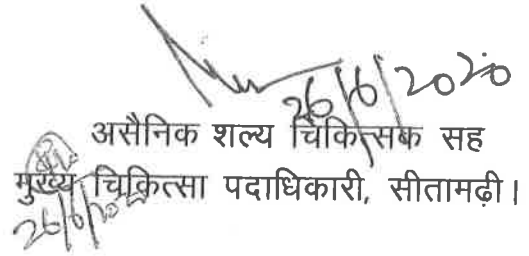 26/6/2020
असैनिक शल्य चिकित्सक सह
मुख्य चिकित्सा पदाधिकारी, सीतामढ़ी।
26/6/2020